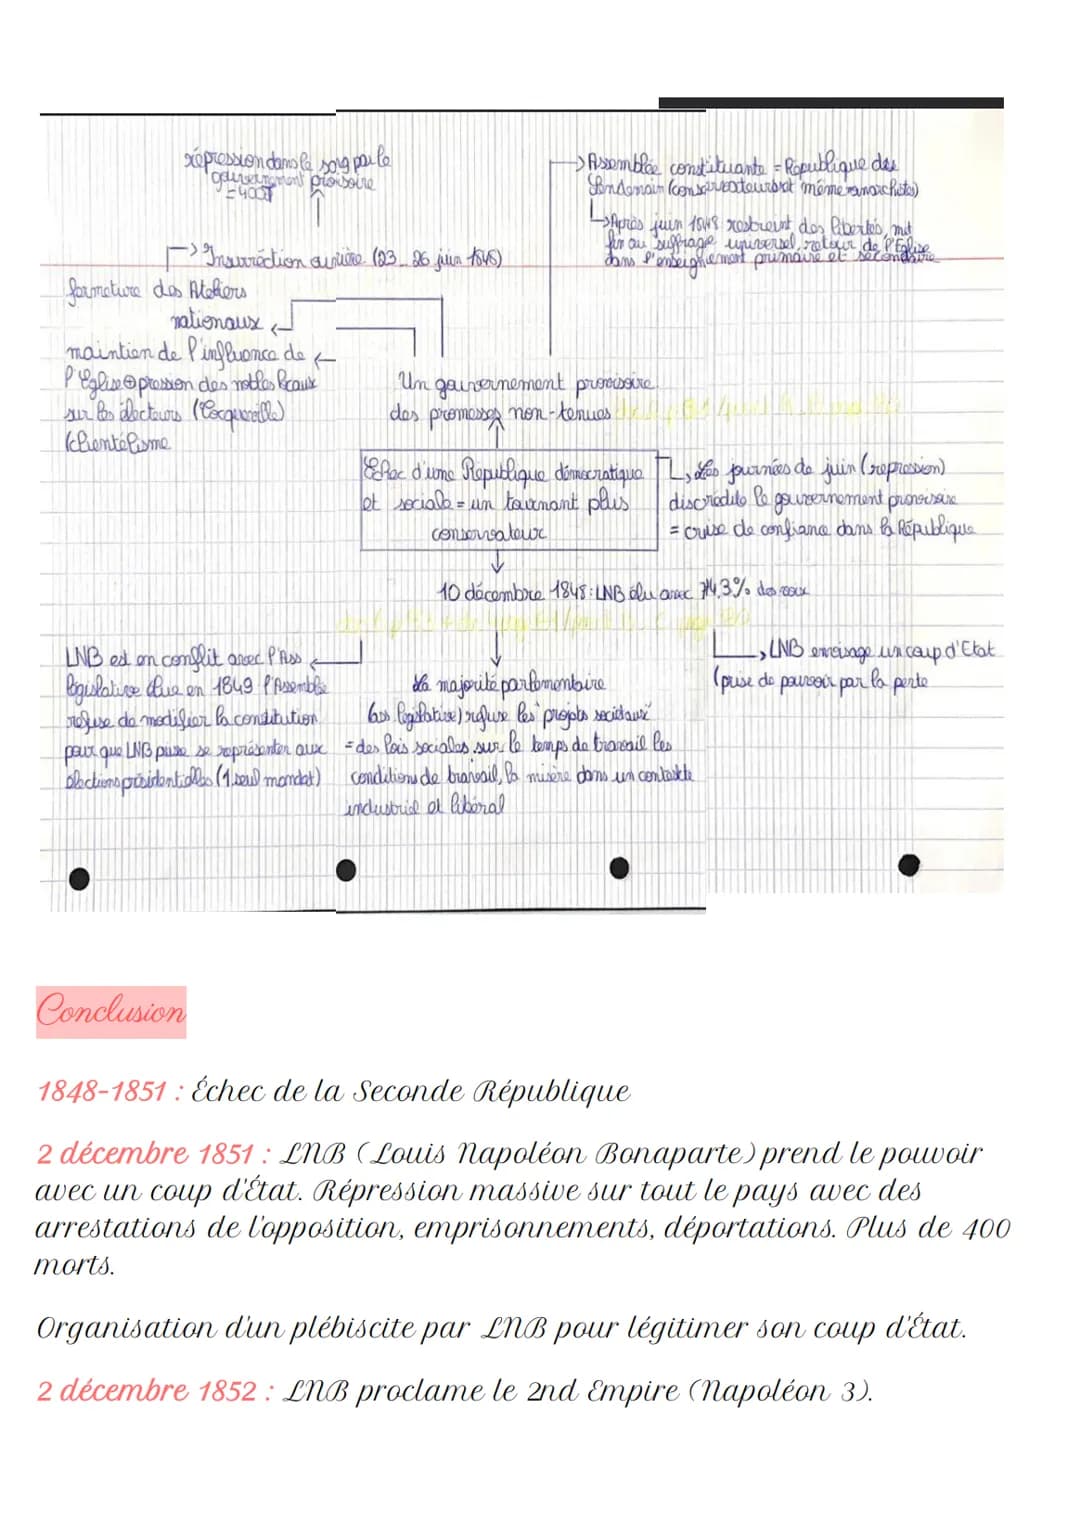 répression dans le sang par le
gouvernement provisoire
= 400
→ Insurrection ouvrière (23_26 juin 1848)
fermeture des Ateliers
nationaux
maintien de l'influence de
l'Eglise ⊕ pression des notbles locaux
sur les électeurs (Tocqueville)
(clientélisme
→ Assemblée constituante = République des
lendemain (conservateurs et même monarchistes)
→ Après juin 1848 restreint des libertés, met
fin au suffrage universel, retour de l'Eglise
dans l'enseignement primaire et secondaire
Un gouvernement provisoire
des promesses non-tenues
Echec d'une République démocratique
et sociale = un tournant plus
conservateur
Les journées de juin (repression)
discrédite le gouvernement provisoire
= crise de confiance dans la République
10 décembre 1848 : LNB élu avec 74,3% des voix
LNB est en conflit avec l'Ass
législative élue en 1849 l'Assemblée
refuse de modifier la constitution
pour que LNB puisse se représenter aux
élections présidentielles (1 seul mandat)
La majorité parlementaire
(ass législative) refuse les projets sociaux
= des lois sociales sur le temps de travail les
conditions de travail, la misère dans un contexte
industriel et libéral
LNB envisage un coup d'Etat
(prise de pouvoir par la perte
Conclusion
1848-1851 : Échec de la Seconde République
2 décembre 1851 : LNB (Louis Napoléon Bonaparte) prend le pouvoir
avec un coup d'État. Répression massive sur tout le pays avec des
arrestations de l'opposition, emprisonnements, déportations. Plus de 400
morts.
Organisation d'un plébiscite par LNB pour légitimer son coup d'État.
2 décembre 1852 : LNB proclame le 2nd Empire (Napoléon 3).